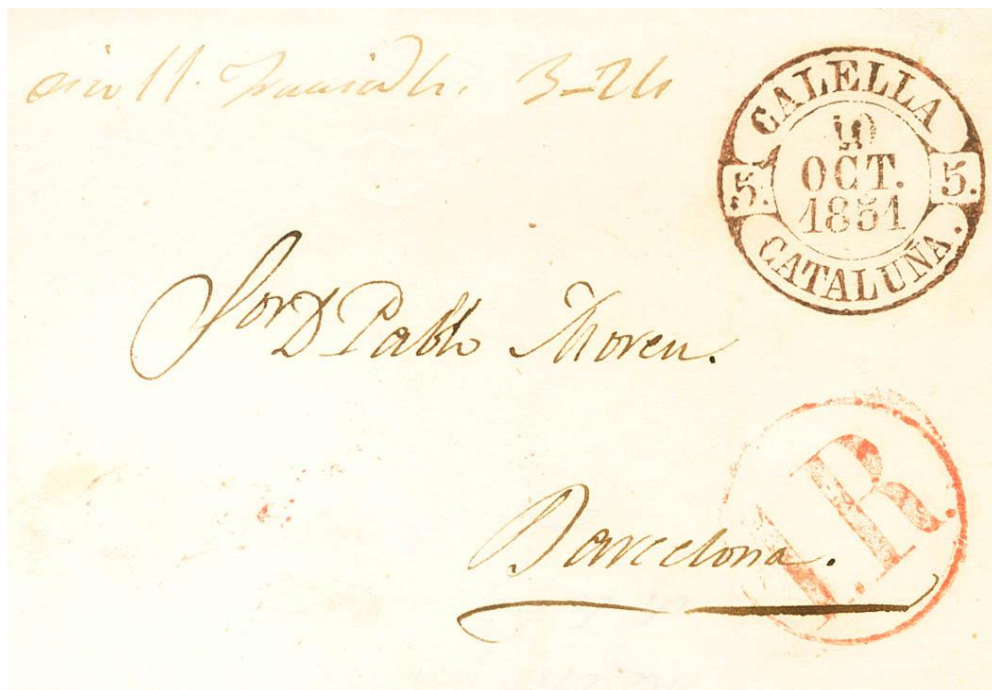 11. 3-24
CALELLA
10
OCT.
1851
5. 5.
CATALUÑA.
Sor D Pablo Moreu.
I.R.
Barcelona.